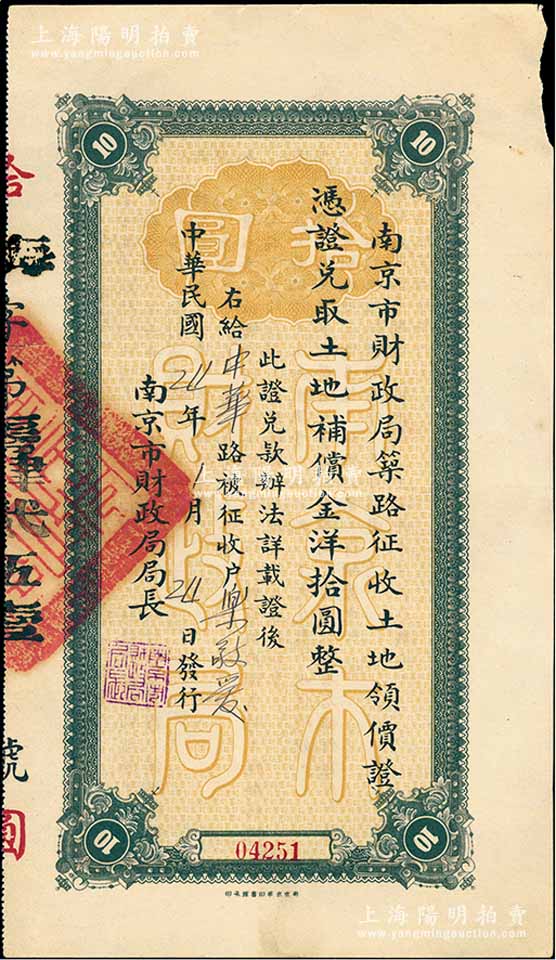 上海陽明拍賣
www.yangmingauction.com
10
10
南京市財政局築路征收土地領價證
憑證兌取土地補償金洋拾圓整
此證兌款辦法詳載證後
右給中華路被征收户樂
中華民國 年1月 日發行
南京市財政局局長
拾圓
南京市
財政局
拾
字第 伍壹
號
圓
上海陽明拍賣
www.yangmingauction.com
10
10
04251
上海陽明拍賣
www.yangmingauction.com